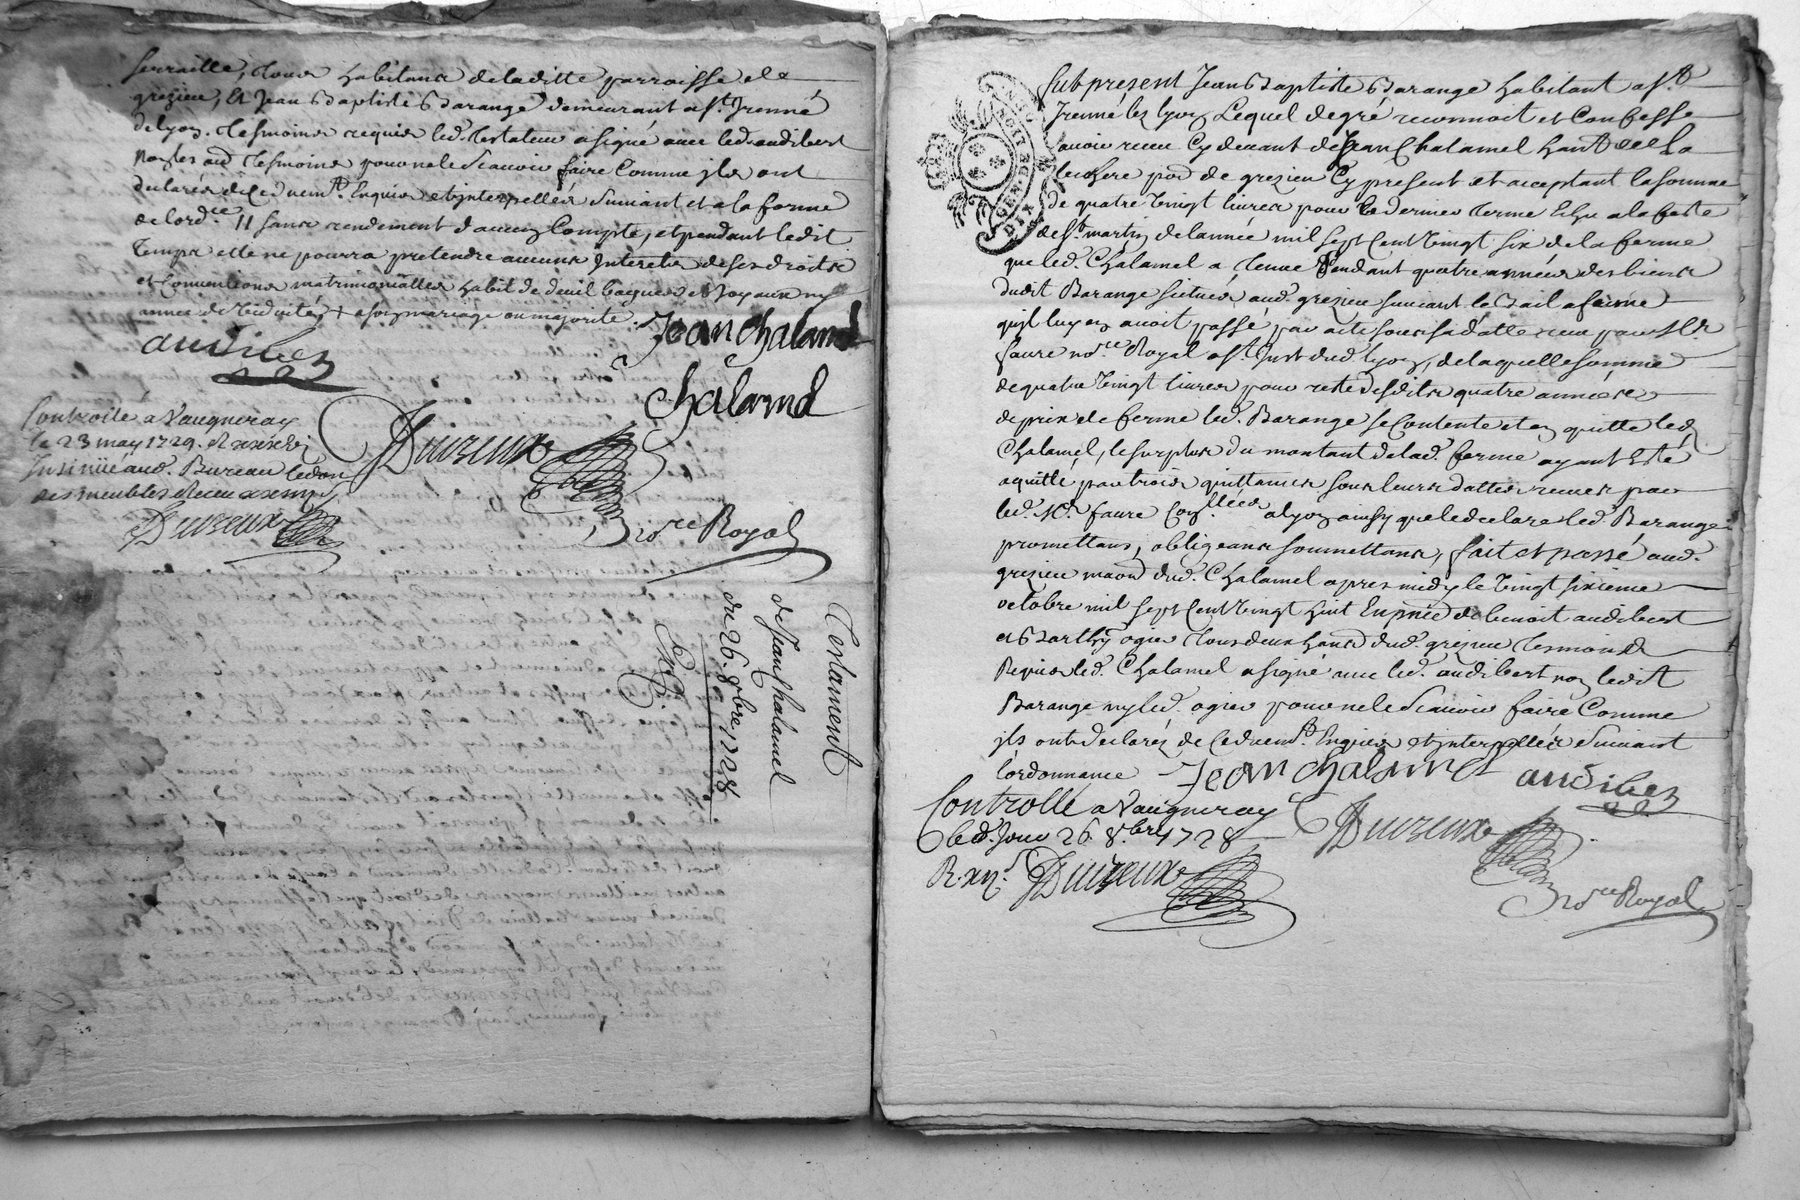 serraille, tous habitans de laditte parroisse de
grezieu, et Jean Baptiste Barange demeurant a st Irenné
de lyon. tesmoins requis led. testateur a signé avec led. audibert
non les au. tesmoins pour ne le scavoir faire comme ils ont
declarés de ce duem.t Enquis et interpellés suivant et a la forme
de lord.ce // sans rendement d'aucun Compte, et pendant ledit
temps elle ne pourra pretendre aucuns Interets de ses droits
et Conventions matrimonialles habit de deuil bagues et Joyaux ny
année de viduité,
mariage ou majorité.
audiber
Jean Chalamel
Chalamel
Controllé a Vaugneray
le 23 may 1729.
Insinué aud. Bureau
des meubles
Duvzeux
Duvzeux
no.re Royal
Testament
de Jean Chalamel
du 26. 8bre 1728
Exp.
GEN. DE LION
DIX
Fut present Jean Baptiste Barange habitant a st
Irenné lez lyon Lequel de gré reconnoit et Confesse
avoir receu Cy devant de Jean Chalamel hant de la
lechere par. de grezieu Cy present et acceptant la somme
de quatre Vingt livres pour le dernier terme Echu a la feste
de st. martin de lannée mil sept Cent Vingt six de la ferme
que led. Chalamel a tenue Pendant quatre années des biens
dudit Barange scitués aud. grezieu suivant le Bail a ferme
qu'il luy en avoit passé par acte sous sa datte receu par M.e
faure no.re Royal a st. Just dud. lyon, de laquelle somme
de quatre Vingt livres pour reste desdits quatre années
de prix de ferme led. Barange se Contente et en quitte led.
Chalamel, le surplus du montant de lad. ferme ayant Esté
aquitté par trois quittances sous leurs dattes receues par
led. M.e faure a lyon ainsy que le declare led. Barange
promettans, obligeans soumettans, fait et passé aud.
grezieu maon dud. Chalamel apres midy le Vingt sixieme
octobre mil sept Cent Vingt huit En pnce de benoit audibert
et Barthy ogier tous deux hans dud. grezieu tesmoins
Requis led. Chalamel a signé avec led. audibert non ledit
Barange ny led. ogier pour ne le scavoir faire Comme
ils ont declarés de Ce duem.t Enquis et interpellés suivant
lordonnance
Jean Chalamel
audiber
Controllé a Vaugneray
led. Jour 26. 8.bre 1728
R. xij s.
Duvzeux
Duvzeux
no.re Royal